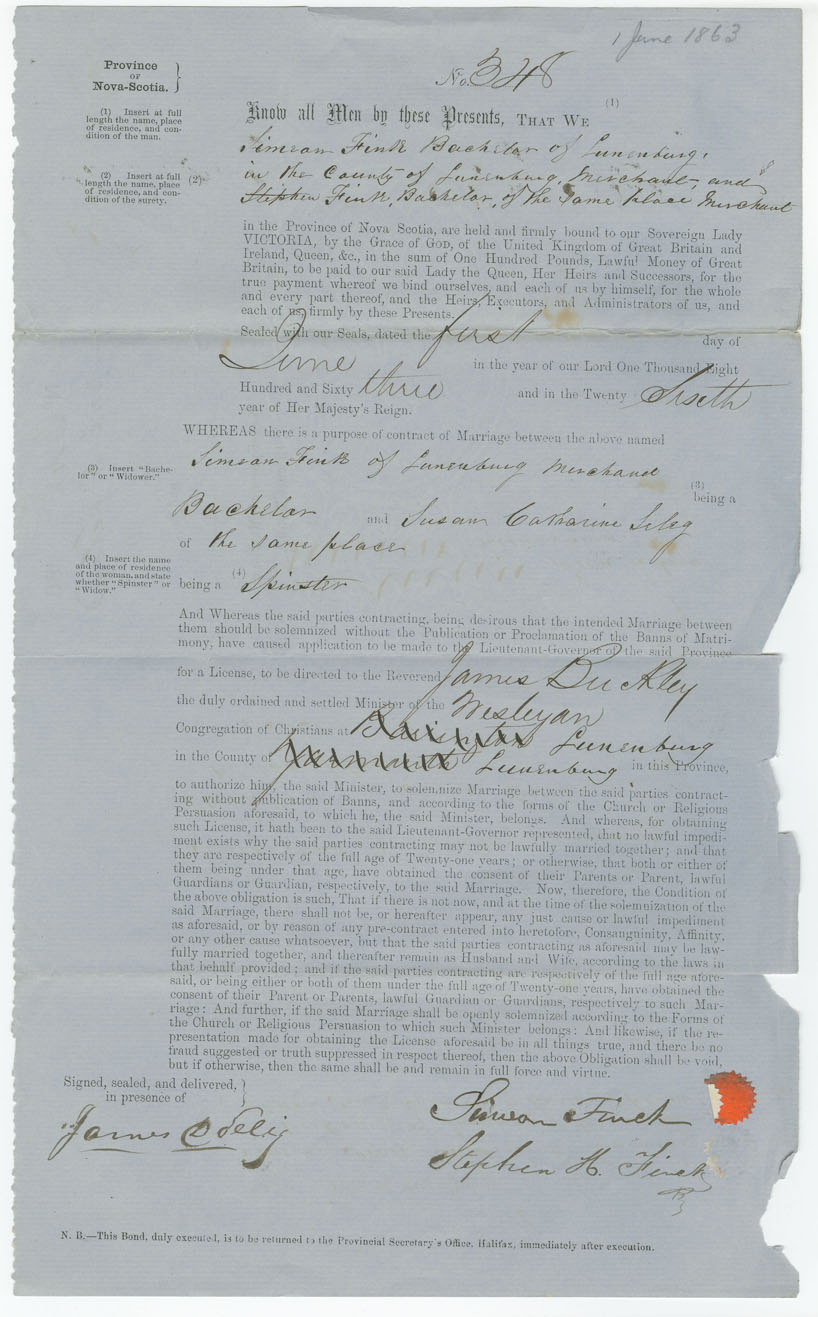 1 June 1863
Province
OF
Nova-Scotia.
No. 348
(1) Insert at full
length the name, place
of residence, and con-
dition of the man.
Know all Men by these Presents, THAT WE (1)
Simeon Fink Bachelor of Lunenburg,
(2) Insert at full
length the name, place
of residence, and con-
dition of the surety.
(2)
in the County of Lunenburg, Merchant, and
Stephen Fink, Bachelor, of the same place Merchant
in the Province of Nova Scotia, are held and firmly bound to our Sovereign Lady
VICTORIA, by the Grace of GOD, of the United Kingdom of Great Britain and
Ireland, Queen, &c., in the sum of One Hundred Pounds, Lawful Money of Great
Britain, to be paid to our said Lady the Queen, Her Heirs and Successors, for the
true payment whereof we bind ourselves, and each of us by himself, for the whole
and every part thereof, and the Heirs, Executors, and Administrators of us, and
each of us firmly by these Presents.
Sealed with our Seals, dated the first day of
June in the year of our Lord One Thousand Eight
Hundred and Sixty three and in the Twenty Sixth
year of Her Majesty's Reign.
WHEREAS there is a purpose of contract of Marriage between the above named
Simeon Fink of Lunenburg Merchand
(3) Insert "Bache-
lor" or "Widower."
(3)
being a
Bachelor and Susan Catharine Seleg
of the same place
(4) Insert the name
and place of residence
of the woman, and state
whether "Spinster" or
"Widow."
being a (4) Spinster
And Whereas the said parties contracting, being desirous that the intended Marriage between
them should be solemnized without the Publication or Proclamation of the Banns of Matri-
mony, have caused application to be made to the Lieutenant-Governor of the said Province
for a License, to be directed to the Reverend James Buckley
the duly ordained and settled Minister of the Wesleyan
Congregation of Christians at Barrington Lunenburg
in the County of Yarmouth Lunenburg in this Province,
to authorize him, the said Minister, to solemnize Marriage between the said parties contract-
ing without Publication of Banns, and according to the forms of the Church or Religious
Persuasion aforesaid, to which he, the said Minister, belongs. And whereas, for obtaining
such License, it hath been to the said Lieutenant-Governor represented, that no lawful impedi-
ment exists why the said parties contracting may not be lawfully married together; and that
they are respectively of the full age of Twenty-one years; or otherwise, that both or either of
them being under that age, have obtained the consent of their Parents or Parent, lawful
Guardians or Guardian, respectively, to the said Marriage. Now, therefore, the Condition of
the above obligation is such, That if there is not now, and at the time of the solemnization of the
said Marriage, there shall not be, or hereafter appear, any just cause or lawful impediment
as aforesaid, or by reason of any pre-contract entered into heretofore, Consanguinity, Affinity,
or any other cause whatsoever, but that the said parties contracting as aforesaid may be law-
fully married together, and thereafter remain as Husband and Wife, according to the laws in
that behalf provided; and if the said parties contracting are respectively of the full age afore-
said, or being either or both of them under the full age of Twenty-one years, have obtained the
consent of their Parent or Parents, lawful Guardian or Guardians, respectively to such Mar-
riage: And further, if the said Marriage shall be openly solemnized according to the Forms of
the Church or Religious Persuasion to which such Minister belongs: And likewise, if the re-
presentation made for obtaining the License aforesaid be in all things true, and there be no
fraud suggested or truth suppressed in respect thereof, then the above Obligation shall be void,
but if otherwise, then the same shall be and remain in full force and virtue.
Signed, sealed, and delivered,
in presence of
James D Selig
Simeon Finck
Stephen H. Finck
N. B.—This Bond, duly executed, is to be returned to the Provincial Secretary's Office, Halifax, immediately after execution.